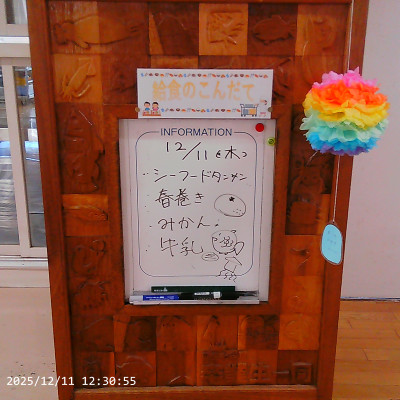 給食のこんだて
INFORMATION
12/11(木)
・シーフードタンメン
春巻き
・みかん
・牛乳
2025/12/11 12:30:55